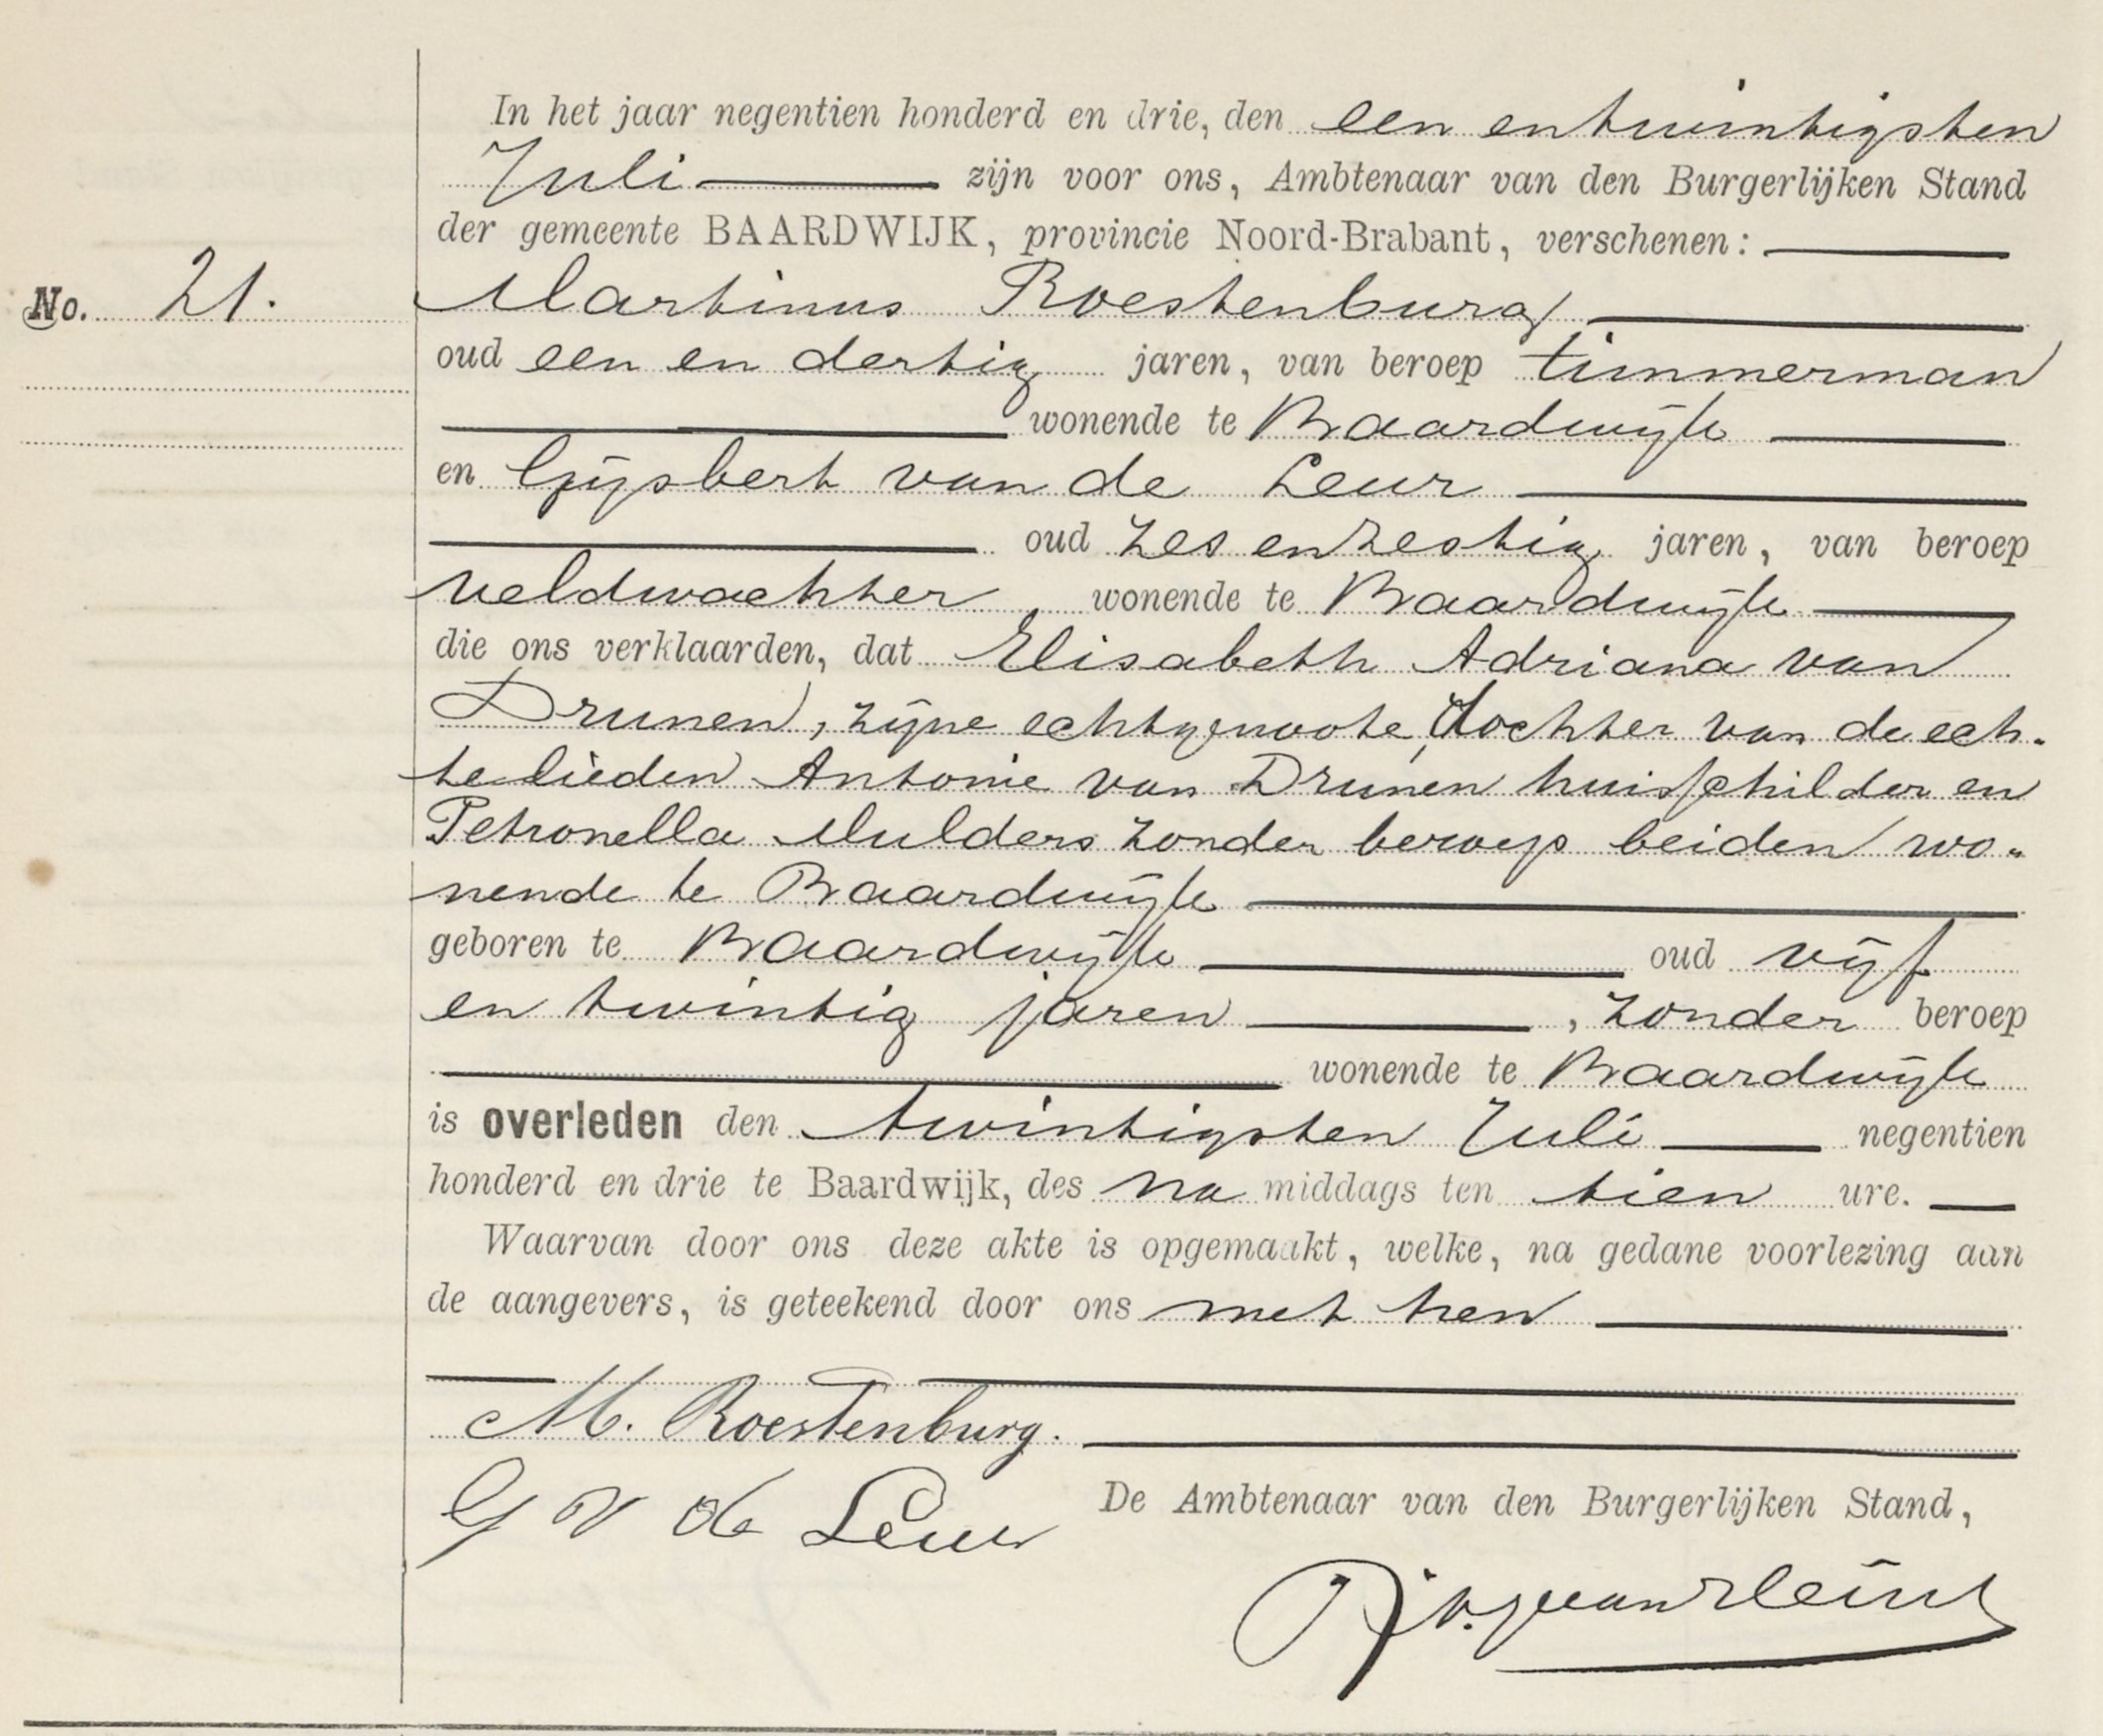 In het jaar negentien honderd en drie, den een en twintigsten
Juli zijn voor ons, Ambtenaar van den Burgerlijken Stand
der gemeente BAARDWIJK, provincie Noord-Brabant, verschenen:
No. 21. Martinus Roestenburg
oud een en dertig jaren, van beroep timmerman
wonende te Baardwijk
en Gijsbert van de Leur
oud zes en zestig jaren, van beroep
veldwachter, wonende te Baardwijk
die ons verklaarden, dat Elisabeth Adriana van
Drunen, zijne echtgenoote, dochter van de ech-
telieden Antonie van Drunen huisschilder en
Petronella Mulders zonder beroep beiden wo-
nende te Baardwijk
geboren te Baardwijk oud vijf
en twintig jaren, zonder beroep
wonende te Baardwijk
is overleden den twintigsten Juli negentien
honderd en drie te Baardwijk, des na middags ten tien ure.
Waarvan door ons deze akte is opgemaakt, welke, na gedane voorlezing aan
de aangevers, is geteekend door ons met hen
M. Roestenburg.
G v de Leur De Ambtenaar van den Burgerlijken Stand,